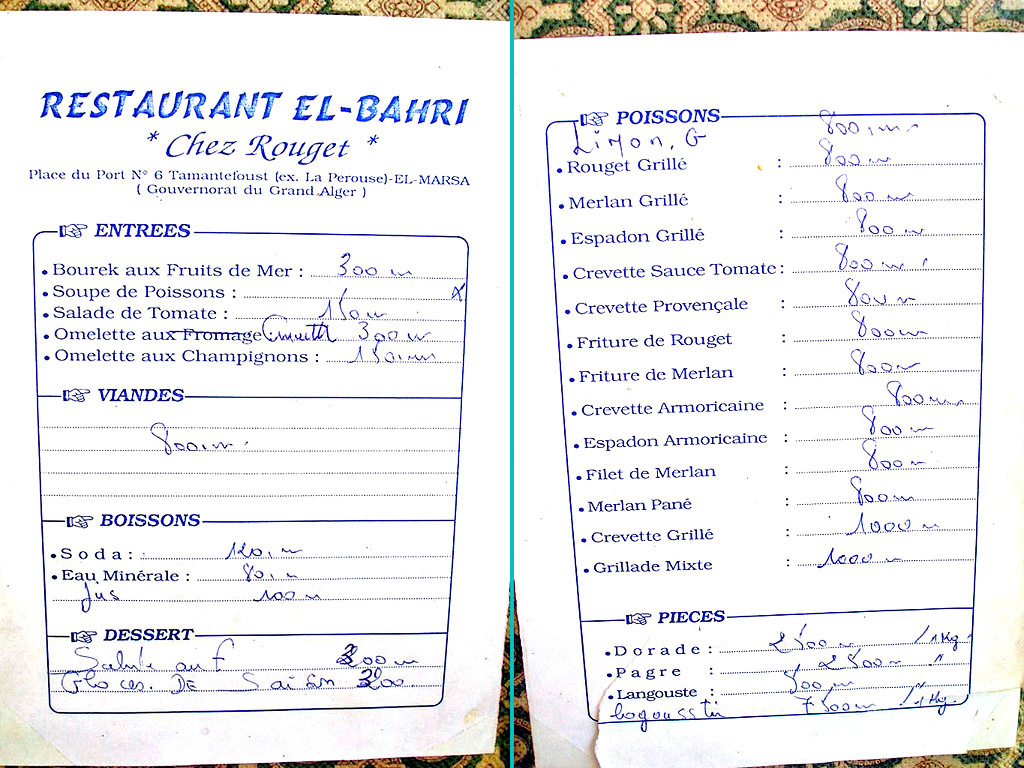 RESTAURANT EL-BAHRI
* Chez Rouget *
Place du Port N° 6 Tamantefoust (ex. La Perouse)-EL-MARSA
( Gouvernorat du Grand Alger )
ENTREES
• Bourek aux Fruits de Mer : 300
• Soupe de Poissons : X
• Salade de Tomate : 150
• Omelette aux Fromage Crevette 300
• Omelette aux Champignons : 150
VIANDES
800
BOISSONS
• Soda : 120
• Eau Minérale : 80
Jus 100
DESSERT
Salade au F 200
Glaces. DE Saison 300
POISSONS
800
• Rouget Grillé : 800
• Merlan Grillé : 800
• Espadon Grillé : 800
• Crevette Sauce Tomate : 800
• Crevette Provençale : 800
• Friture de Rouget : 800
• Friture de Merlan : 800
• Crevette Armoricaine : 800
• Espadon Armoricaine : 800
• Filet de Merlan : 800
• Merlan Pané : 800
• Crevette Grillé : 1000
• Grillade Mixte : 1000
PIECES
• Dorade : 2500 /1Kg
• Pagre : 2500 "
• Langouste :
/1Kg.